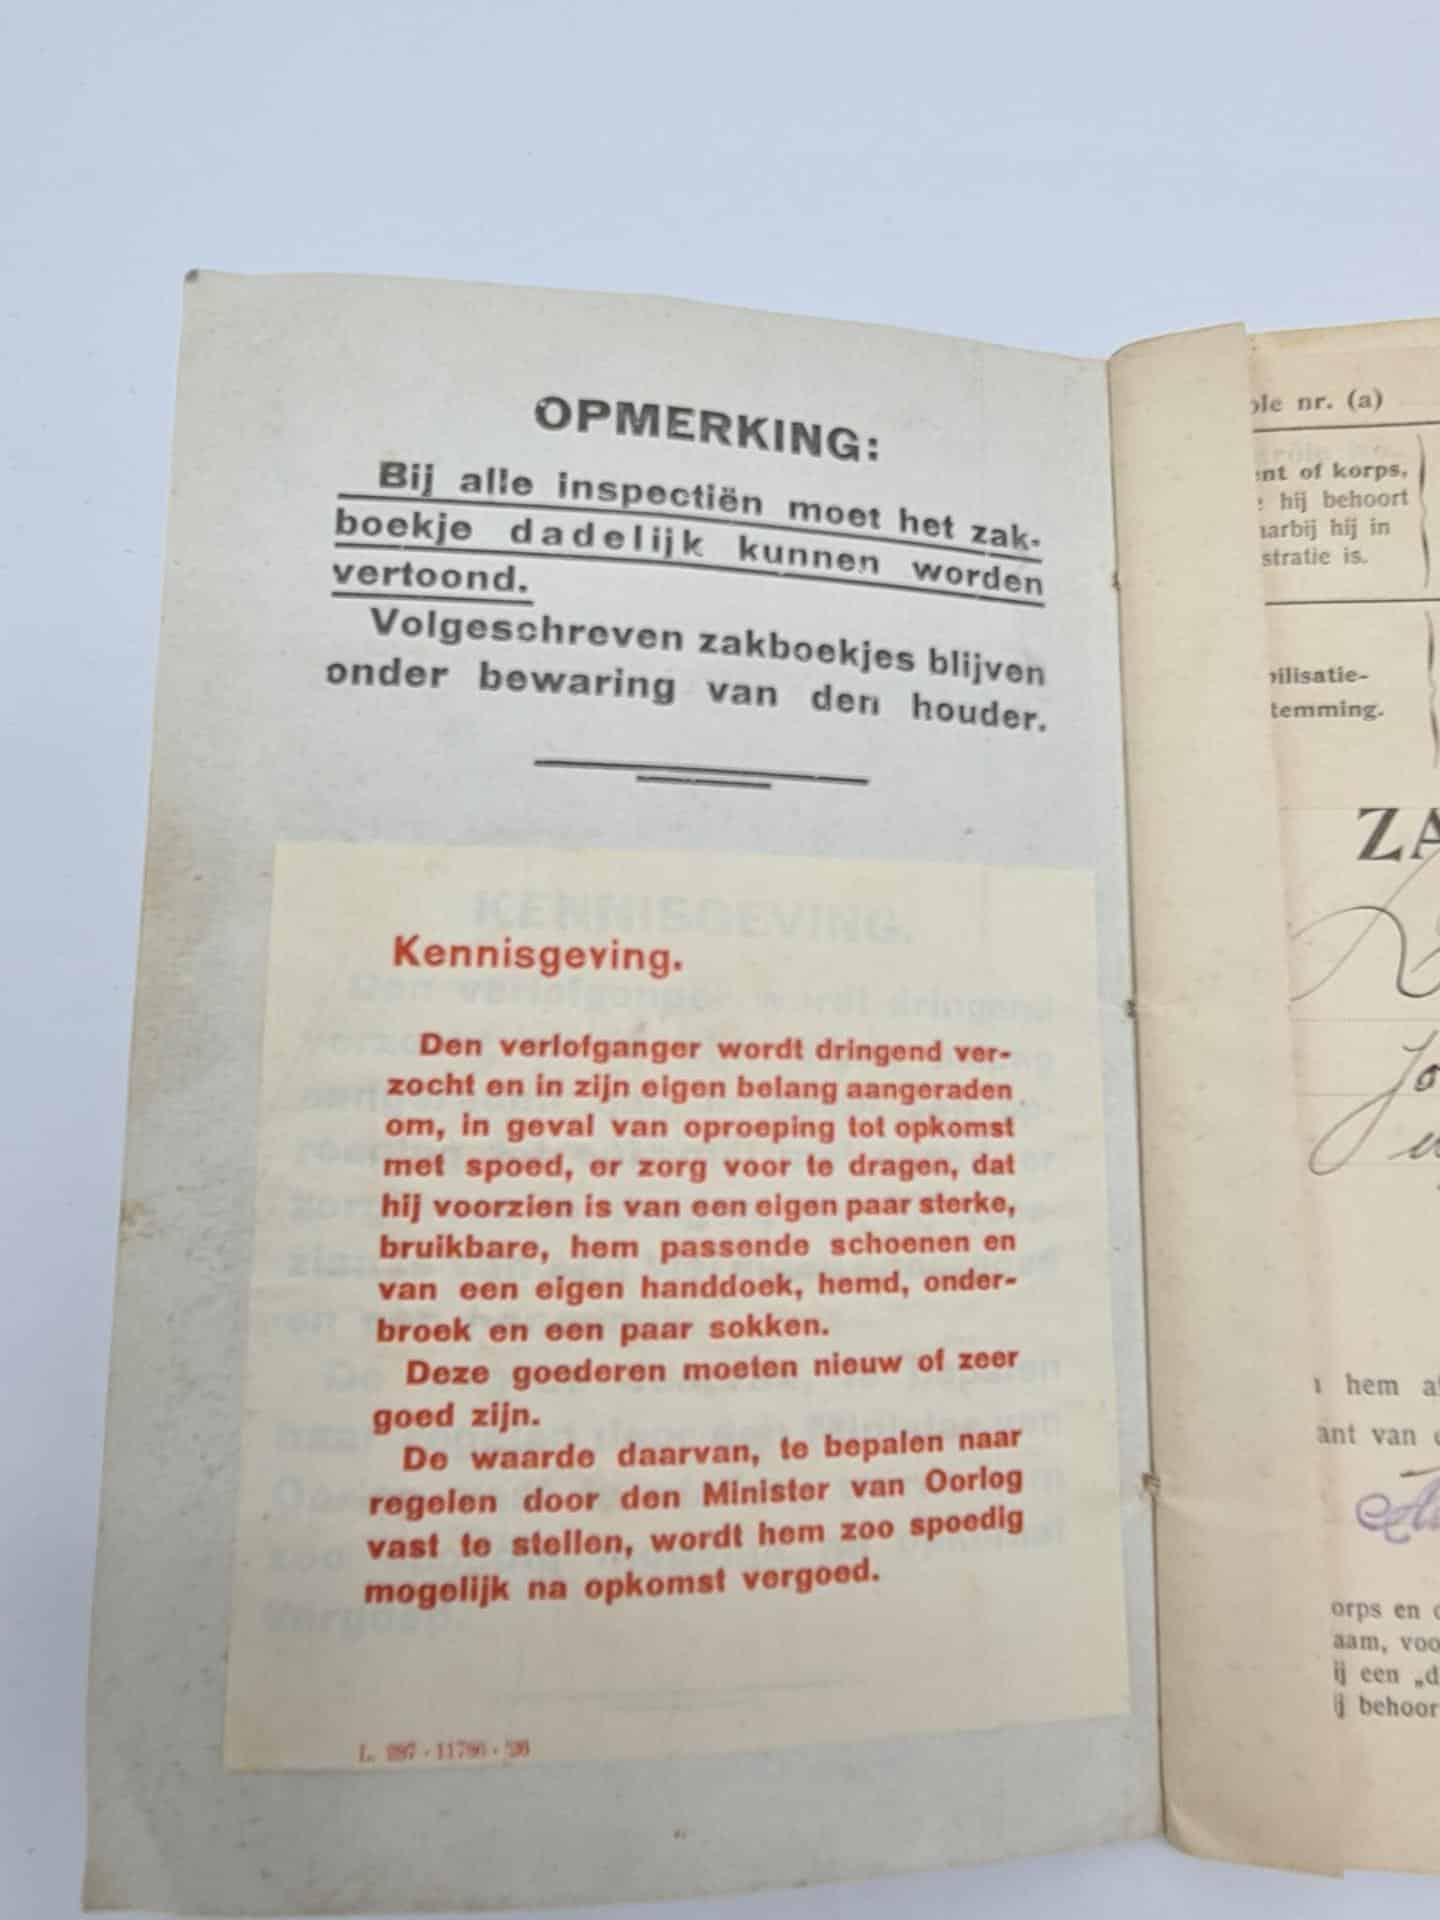 OPMERKING:
Bij alle inspectiën moet het zak-
boekje dadelijk kunnen worden
vertoond.
Volgeschreven zakboekjes blijven
onder bewaring van den houder.
KENNISGEVING.
Kennisgeving.
Den verlofganger wordt dringend ver-
zocht en in zijn eigen belang aangeraden
om, in geval van oproeping tot opkomst
met spoed, er zorg voor te dragen, dat
hij voorzien is van een eigen paar sterke,
bruikbare, hem passende schoenen en
van een eigen handdoek, hemd, onder-
broek en een paar sokken.
Deze goederen moeten nieuw of zeer
goed zijn.
De waarde daarvan, te bepalen naar
regelen door den Minister van Oorlog
vast te stellen, wordt hem zoo spoedig
mogelijk na opkomst vergoed.
ole nr. (a)
ent of korps,
hij behoort
aarbij hij in
stratie is.
bilisatie-
temming.
ZA
hem
ant van
orps en
aam, voo
ij een „d
ij behoor